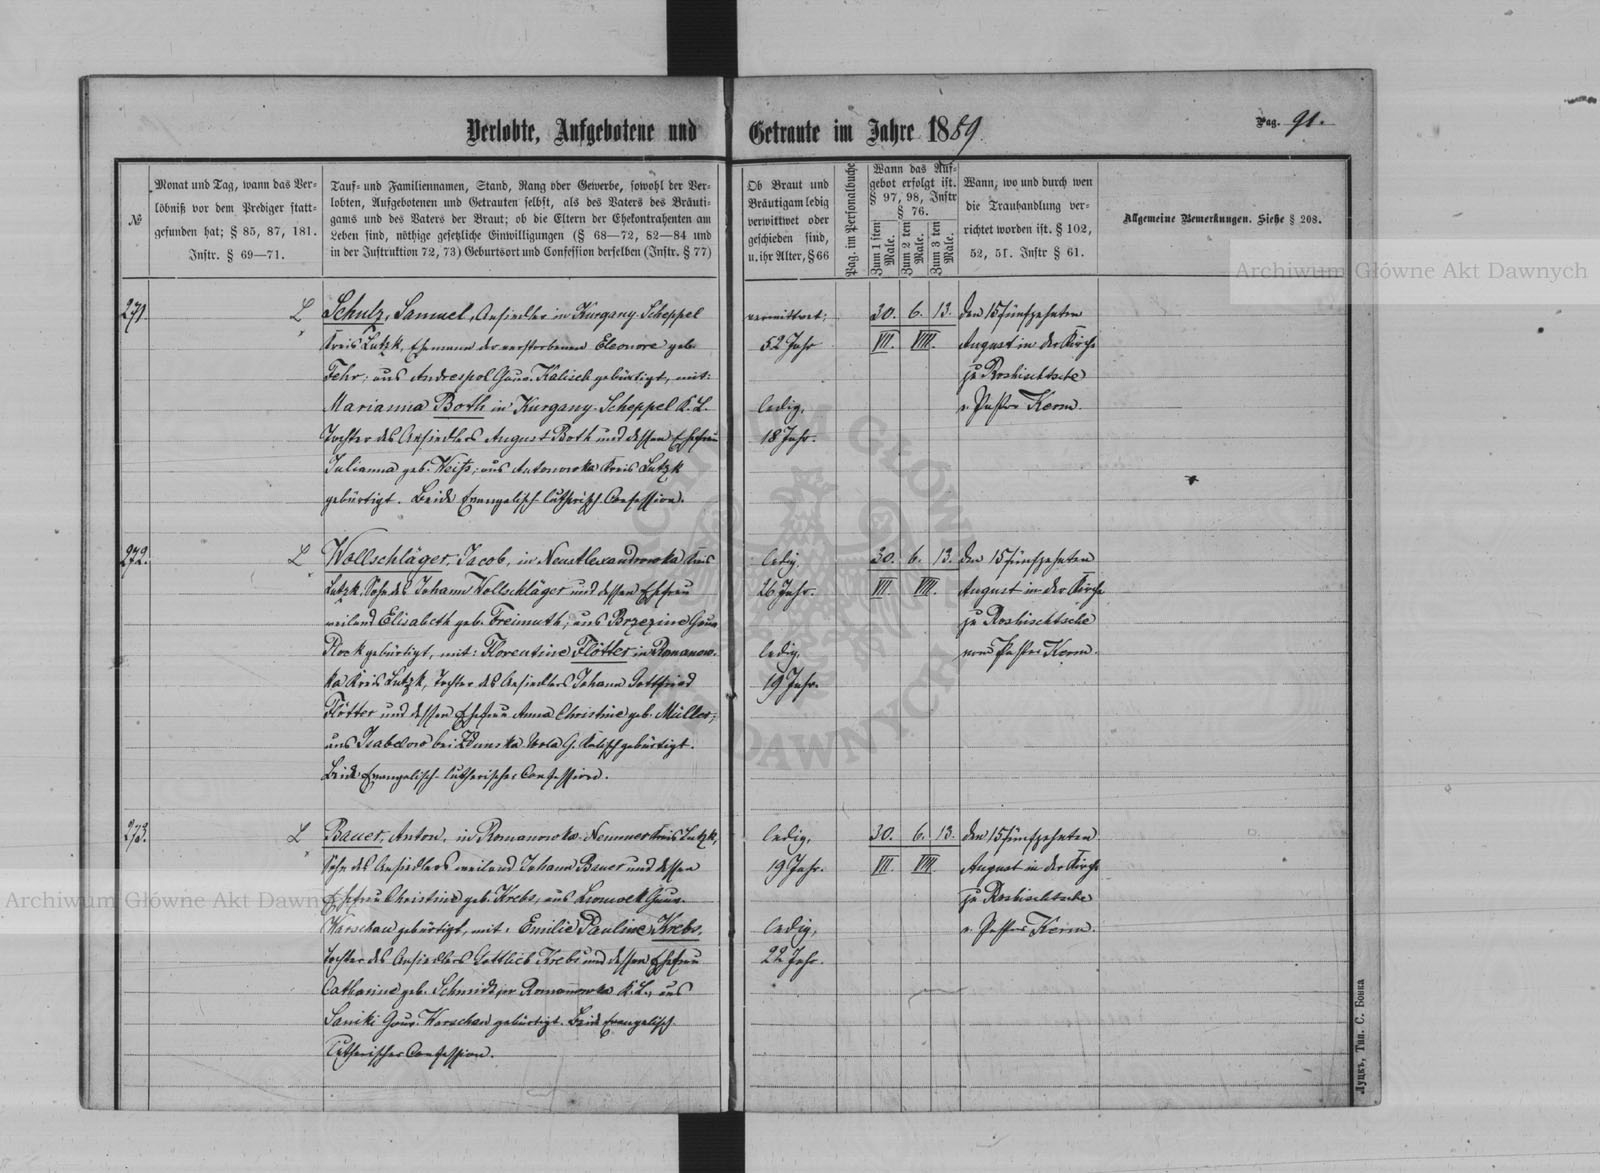 Verlobte, Aufgebotene und Getraute im Jahre 1889.
Pag. 91.
№
Monat und Tag, wann das Ver-
löbniß vor dem Prediger statt-
gefunden hat; § 85, 87, 181.
Instr. § 69—71.
Tauf- und Familiennamen, Stand, Rang oder Gewerbe, sowohl der Ver-
lobten, Aufgebotenen und Getrauten selbst, als des Vaters des Bräuti-
gams und des Vaters der Braut; ob die Eltern der Ehekontrahenten am
Leben sind, nöthige gesetzliche Einwilligungen (§ 68—72, 82—84 und
in der Instruktion 72, 73) Geburtsort und Confession derselben (Instr. § 77)
Ob Braut und
Bräutigam ledig
verwittwet oder
geschieden sind,
u. ihr Alter, § 66
Pag. im Personalbuche
Wann das Auf-
gebot erfolgt ist.
§ 97, 98, Instr
§ 76.
Zum 1 sten Male.
Zum 2 ten Male.
Zum 3 ten Male.
Wann, wo und durch wen
die Trauhandlung ver-
richtet worden ist. § 102,
52, 51. Instr § 61.
Allgemeine Bemerkungen. Siehe § 208.
271.
L
Schulz, Samuel, Ansiedler in Kurgany-Scheppel
Kreis Lutzk, Ehemann der verstorbenen Eleonore geb.
Fehr; aus Andrespol Gouv. Kalisch gebürtigt, mit:
Marianna Both in Kurgany-Scheppel K. L.
Tochter des Ansiedlers August Both und dessen Ehefrau
Julianna geb. Weiß; aus Antonowka Kreis Lutzk
gebürtigt. Beide Evangelisch-lutherisch. Confession.
verwittwet;
52 Jahr
ledig,
18 Jahr.
30. 6. 13.
VII. VIII.
den 15 fünfzehnten
August in der Kirche
zu Roshischtsche
v. Pastor Kerm.
272.
L
Wollschläger, Jacob, in Neu Alexandrowka Kreis
Lutzk, Sohn des Johann Wollschläger und dessen Ehefrau
weiland Elisabeth geb. Freimuth; aus Brzezine Gouv.
Plock gebürtigt, mit: Florentine Flötter in Romanow-
ka Kreis Lutzk, Tochter des Ansiedlers Johann Gottfried
Flötter und dessen Ehefrau Anna Christine geb. Müller;
aus Isabelow bei Zdunska Wola G. Kalisch gebürtigt.
Beide Evangelisch-lutherischer Confession.
ledig,
26 Jahr.
ledig,
19 Jahr.
30. 6. 13.
VII. VIII.
den 15 fünfzehnten
August in der Kirche
zu Roshischtsche
vom Pastor Kerm.
273.
L
Bauer, Anton, in Romanowka-Nemmer Kreis Lutzk,
Sohn des Ansiedlers weiland Johann Bauer und dessen
Ehefrau Christine geb. Krebs, aus Gouv.
Warschau gebürtigt, mit: Emilie Pauline Krebs,
Tochter des Ansiedlers Gottlieb Krebs und dessen Ehefrau
Catharine geb. Schmidt Romanowka K. L., aus
Saniki Gouv. Warschau gebürtigt. Beide Evangelisch-
lutherischer Confession.
ledig,
19 Jahr.
ledig,
22 Jahr.
30. 6. 13.
VII. VIII.
den 15 fünfzehnten
August in der Kirche
zu Roshischtsche
v. Pastor Kerm.
Луцкъ, Тип. С. Бонка
Archiwum Główne Akt Dawnych
Archiwum Główne Akt Dawnych